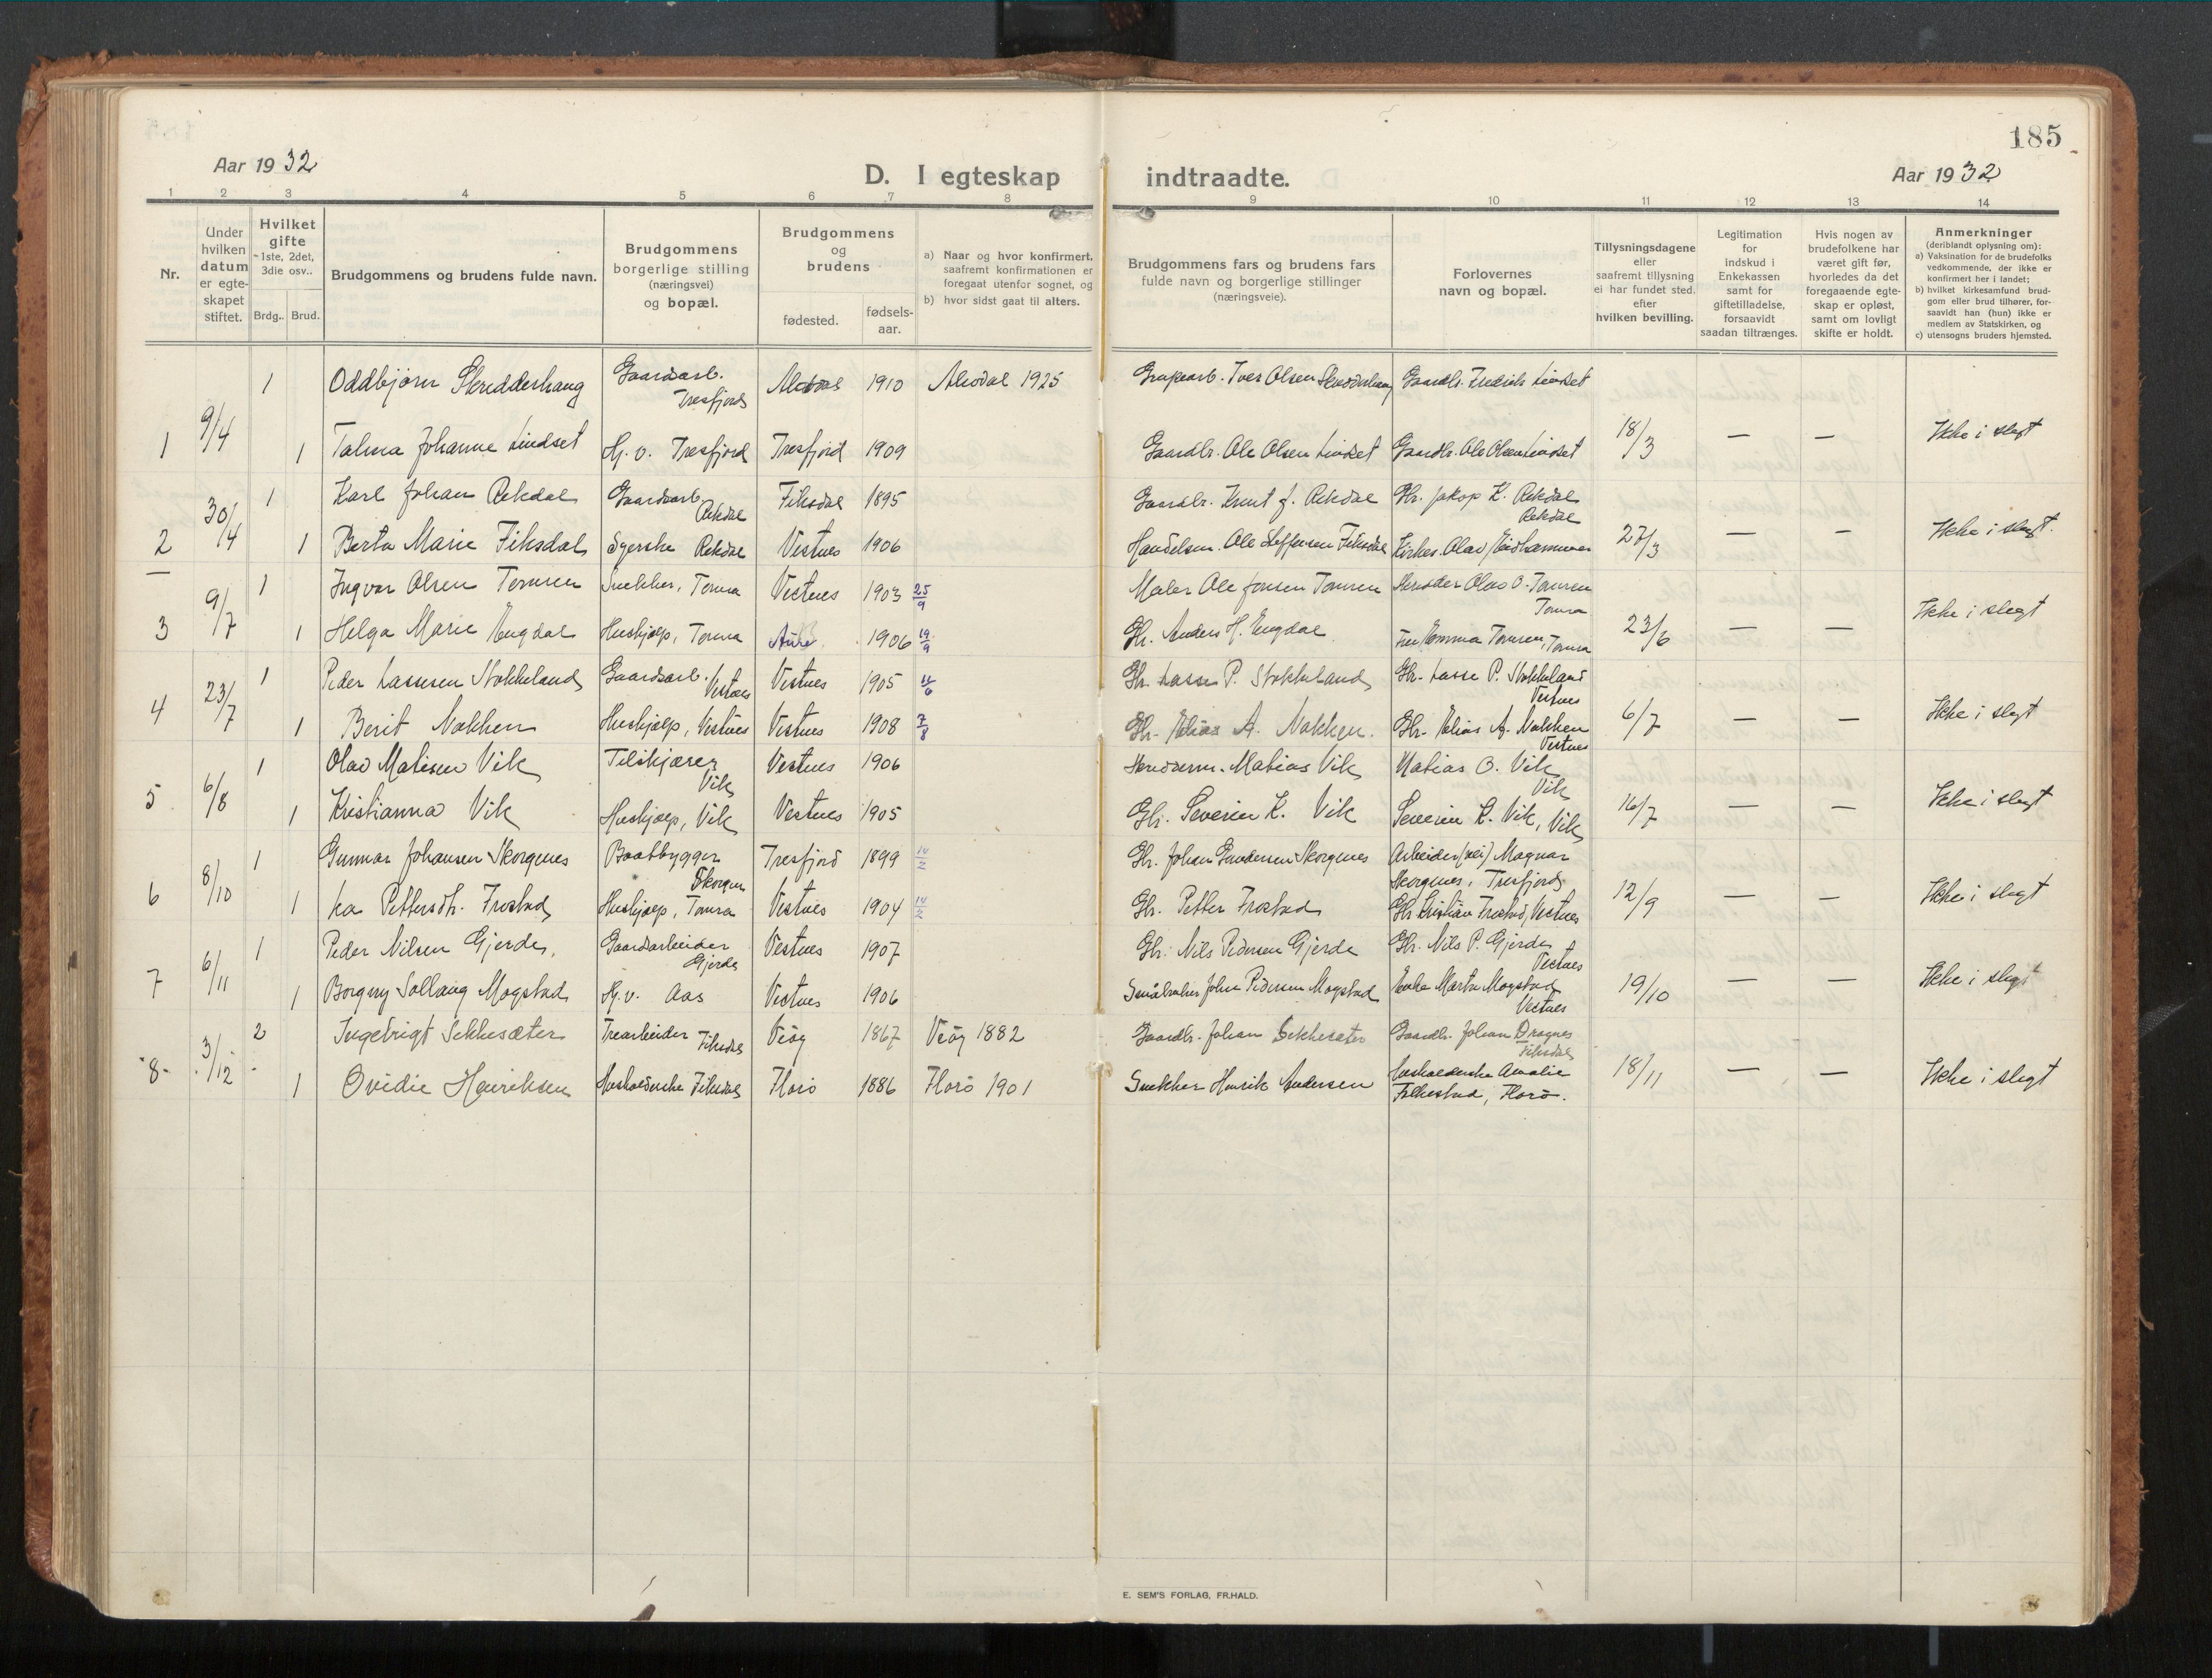 185
Aar 1932
D. I egteskap indtraadte.
Aar 1932
1 2 3 4 5 6 7 8 9 10 11 12 13 14
Nr.
Under hvilken datum er egte-skapet stiftet.
Hvilket gifte 1ste, 2det, 3die osv..
Brdg.. Brud.
Brudgommens og brudens fulde navn.
Brudgommens borgerlige stilling (næringsvei) og bopæl.
Brudgommens og brudens
fødested.
fødsels-aar.
a) Naar og hvor konfirmert, saafremt konfirmationen er foregaat utenfor sognet, og
b) hvor sidst gaat til alters.
Brudgommens fars og brudens fars fulde navn og borgerlige stillinger (næringsveie).
Forlovernes navn og bopæl.
Tillysningsdagene eller saafremt tillysning ei har fundet sted. efter hvilken bevilling.
Legitimation for indskud i Enkekassen samt for giftetilladelse, forsaavidt saadan tiltrænges.
Hvis nogen av brudefolkene har været gift før, hvorledes da det foregaaende egte-skap er opløst, samt om lovligt skifte er holdt.
Anmerkninger (deriblandt oplysning om):
a) Vaksination for de brudefolks vedkommende, der ikke er konfirmert her i landet;
b) hvilket kirkesamfund brud-gom eller brud tilhører, for-saavidt han (hun) ikke er medlem av Statskirken, og
c) utensogns bruders hjemsted.
1 Oddbjørn Skredderhaug Gaardsarb. Tresfjord 1910 1925 Iver Olsen Skredderhaug Gaardbr. Fredrik Lindset
1 9/4 1 Talma Johanne Lindset Hj. v. Tresfjord Tresfjord 1909 Gaardbr. Ole Olsen Lindset Gaardbr. Ole Olsen Lindset 18/3 — — Ikke i slegt
1 Karl Johan Rekdal Gaardsarb. Rekdal Fiksdal 1895 Gaardbr. Knut J. Rekdal Gbr. Jakop K. Rekdal Rekdal
2 30/4 1 Berta Marie Fiksdal Syerske Rekdal Vestnes 1906 Handelsm. Ole Steffensen Fiksdal Kirkes. Olav Eidhammer 27/3 — — Ikke i slegt.
1 Ingvar Olsen Tomren Snekker, Tomra Vestnes 1903 25/9 Maler Ole Jonsen Tomren Skredder Olav O. Tomren Tomra
3 9/7 1 Helga Marie Engdal Hushjælp, Tomra Aure 1906 19/9 Gbr. Anders H. Engdal Fru Emma Tomren, Tomra 23/6 — — Ikke i slegt
1 Peder Lassesen Stokkeland Gaardsarb. Vestnes Vestnes 1905 11/6 Gbr. Lasse P. Stokkeland Gbr. Lasse P. Stokkeland Vestnes
4 23/7 1 Berit Nakken Hushjælp, Vestnes Vestnes 1908 7/8 Gbr. Elias A. Nakken. Gbr. Elias A. Nakken Vestnes 6/7 — — Ikke i slegt
1 Olav Matisen Vik Tilskjærer Vik Vestnes 1906 Skredderm. Matias Vik Matias O. Vik Vik
5 6/8 1 Kristianna Vik Hushjælp, Vik Vestnes 1905 Gbr. Severin K. Vik Severin K. Vik, Vik 16/7 — — Ikke i slegt
1 Gunnar Johansen Skorgenes Baatbygger Skorgen Tresfjord 1899 14/2 Gbr. Johan Gundersen Skorgenes Arbeider (vei) Magnar Skorgenes, Tresfjord
6 8/10 1 Pettersdtr. Frostad Hushjælp, Tomra Vestnes 1904 14/2 Gbr. Petter Frostad Gbr Kristian Frostad, Vestnes 12/9 — — Ikke i slegt
1 Peder Nilsen Gjerde, Gaardsarbeider Gjerde Vestnes 1907 Gbr. Nils Pedersen Gjerde Gbr. Nils P. Gjerde Vestnes
7 6/11 1 Borgny Sollaug Mogstad Hj. v. Aas Vestnes 1906 Småbruker John Pedersen Mogstad Enke Marta Mogstad Vestnes 19/10 — — Ikke i slegt
2 Ingebrigt Sekkesæter Trearbeider Fiksdal Veøy 1867 Veøy 1882 Gaardbr. Johan Sekkesæter Gaardbr. Johan Dragnes Fiksdal
8. 3/12 1 Ovidie Henriksen Husholderske Fiksdal Florø 1886 Florø 1901 Snekker Henrik Andersen Husholderske Amalie Folkestad, Florø. 18/11 — — Ikke i slegt
E. SEM'S FORLAG, FR.HALD.